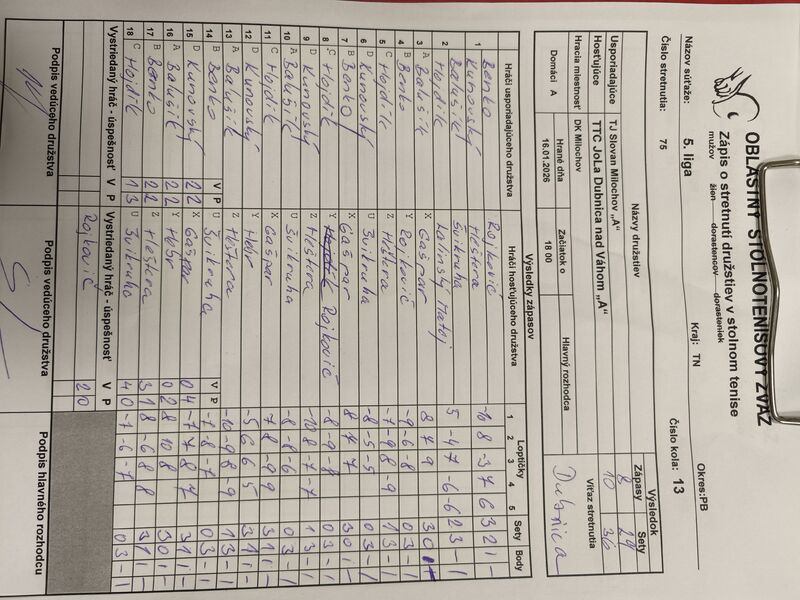 OBLASTNÝ STOLNOTENISOVÝ ZVÄZ
Zápis o stretnutí družstiev v stolnom tenise
mužov žien dorastencov dorasteniek
Názov súťaže: 5. liga Kraj: TN Okres:PB
Číslo stretnutia: 75 Číslo kola: 13
Názvy družstiev Výsledok
Zápasy Sety
Usporiadajúce TJ Slovan Milochov „A" 8
Hosťujúce TTC JoLa Dubnica nad Váhom „A" 10 36
Hracia miestnosť Hrané dňa Začiatok o Hlavný rozhodca Víťaz stretnutia
DK Milochov 16.01.2026 18 00 Dubnica
Domáci A
Výsledky zápasov
Hráči usporiadajúceho družstva Hráči hosťujúceho družstva Loptičky Sety Body
1 2 3 4 5
1 Benko Rojkovič -16 8 -3 7 6 3 2 1 -
Kunovský Hestera
2 Balušík Latinský Matej 5 -4 7 -6 -6 2 3 - 1
Hojdík Švikruha
3 A Balušík X Gašpar 8 7 9 3 0
4 B Benko Y Rojkovič -9 -6 -8 0 3 - 1
5 C Hojdík Z Heštera -7 -9 8 -9 1 3 - 1
6 D Kunovský U Švikruha -8 -5 -5 0 3 - 1
7 B Benko X Gašpar 8 7 7 3 0 1 -
8 C Hojdík Y Rojkovič -8 -9 -8 0 3 - 1
9 D Kunovský Z Heštera -10 8 -7 -7 1 3 - 1
10 A Balušík U Švikruha -8 -8 -6 0 3 - 1
11 C Hojdík X Gašpar 7 8 -9 9 3 1 1 -
12 D Kunovský Y Hebr -5 6 6 5 3 1 1 -
13 A Balušík Z Heštera -10 -9 8 -9 1 3 - 1
14 B Benko V P U Švikruha V P -7 -8 -7 0 3 - 1
15 D Kunovský 2 2 X Gašpar 0 4 -7 7 8 7 3 1 1 -
16 A Balušík 2 2 Y Hebr 0 2 8 10 8 3 0 1 -
17 B Benko 2 2 Z Heštera 3 1 8 -6 8 8 3 1 1 -
18 C Hojdík 1 3 U Švikruha 4 0 -7 -6 -7 0 3 - 1
Vystriedaný hráč - úspešnosť V P Vystriedaný hráč - úspešnosť V P
Rojkovič 2 0
Podpis vedúceho družstva Podpis vedúceho družstva Podpis hlavného rozhodcu